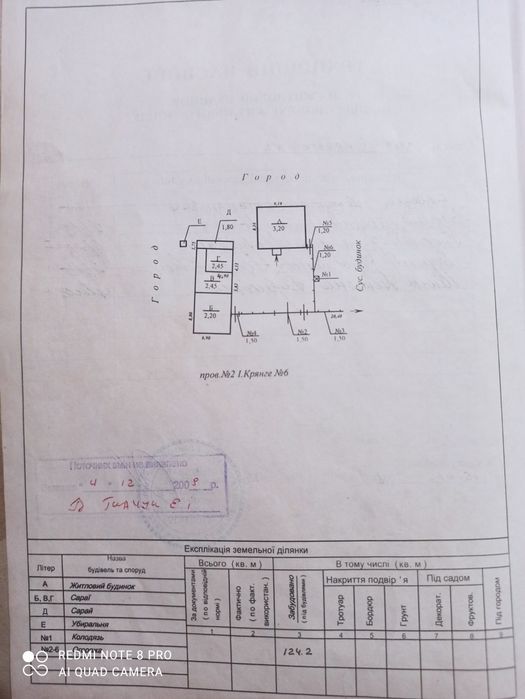 Г о р о д
Е
Д
1,80
А
3,20
№5
1,20
№6
1,20
Г
2,45
В
2,45
№1
Город
Сус. будинок
Б
2,20
№4
1,50
№2
1,50
№3
1,50
пров.№2 І.Крянге №6
Поточних змін не виявлено
4 12 2008 р.
Експлікація земельної ділянки
Літер
Назва будівель та споруд
Всього (кв. м)
В тому числі (кв. м)
За документами (по відповідній нормі)
Фактично (по факт. використан.)
Забудовано (під будівлями)
Накриття подвір'я
Під садом
Тротуар
Бордюр
Грунт
Декорат.
Фруктов.
Під городом
1 2 3 4 5 6 7 8 9
А Житловий будинок
Б, В,Г Сараї
Д Сарай
Е Убиральня
№1 Колодязь
124.2
REDMI NOTE 8 PRO
AI QUAD CAMERA